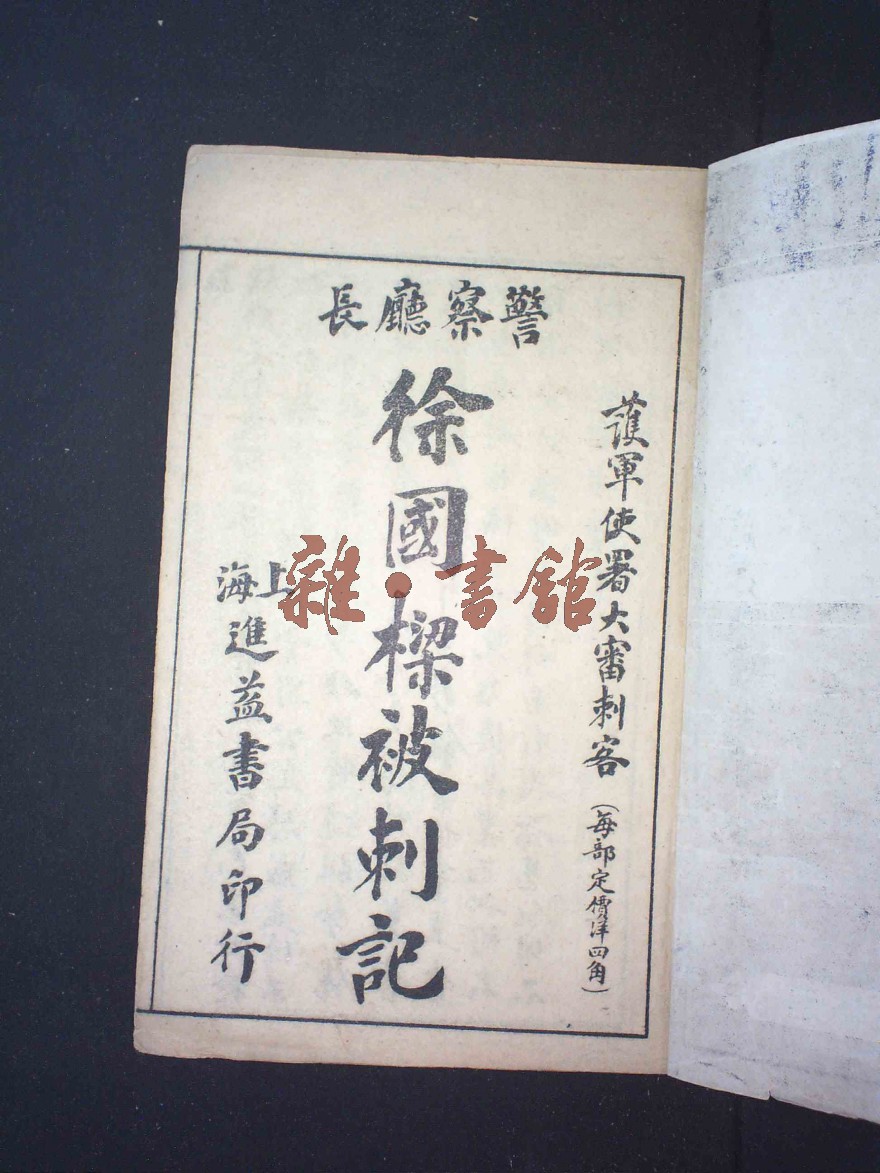 警察廳長
護軍使署大審刺客(每部定價洋四角)
徐國樑被刺記
上海進益書局印行
雜·書館